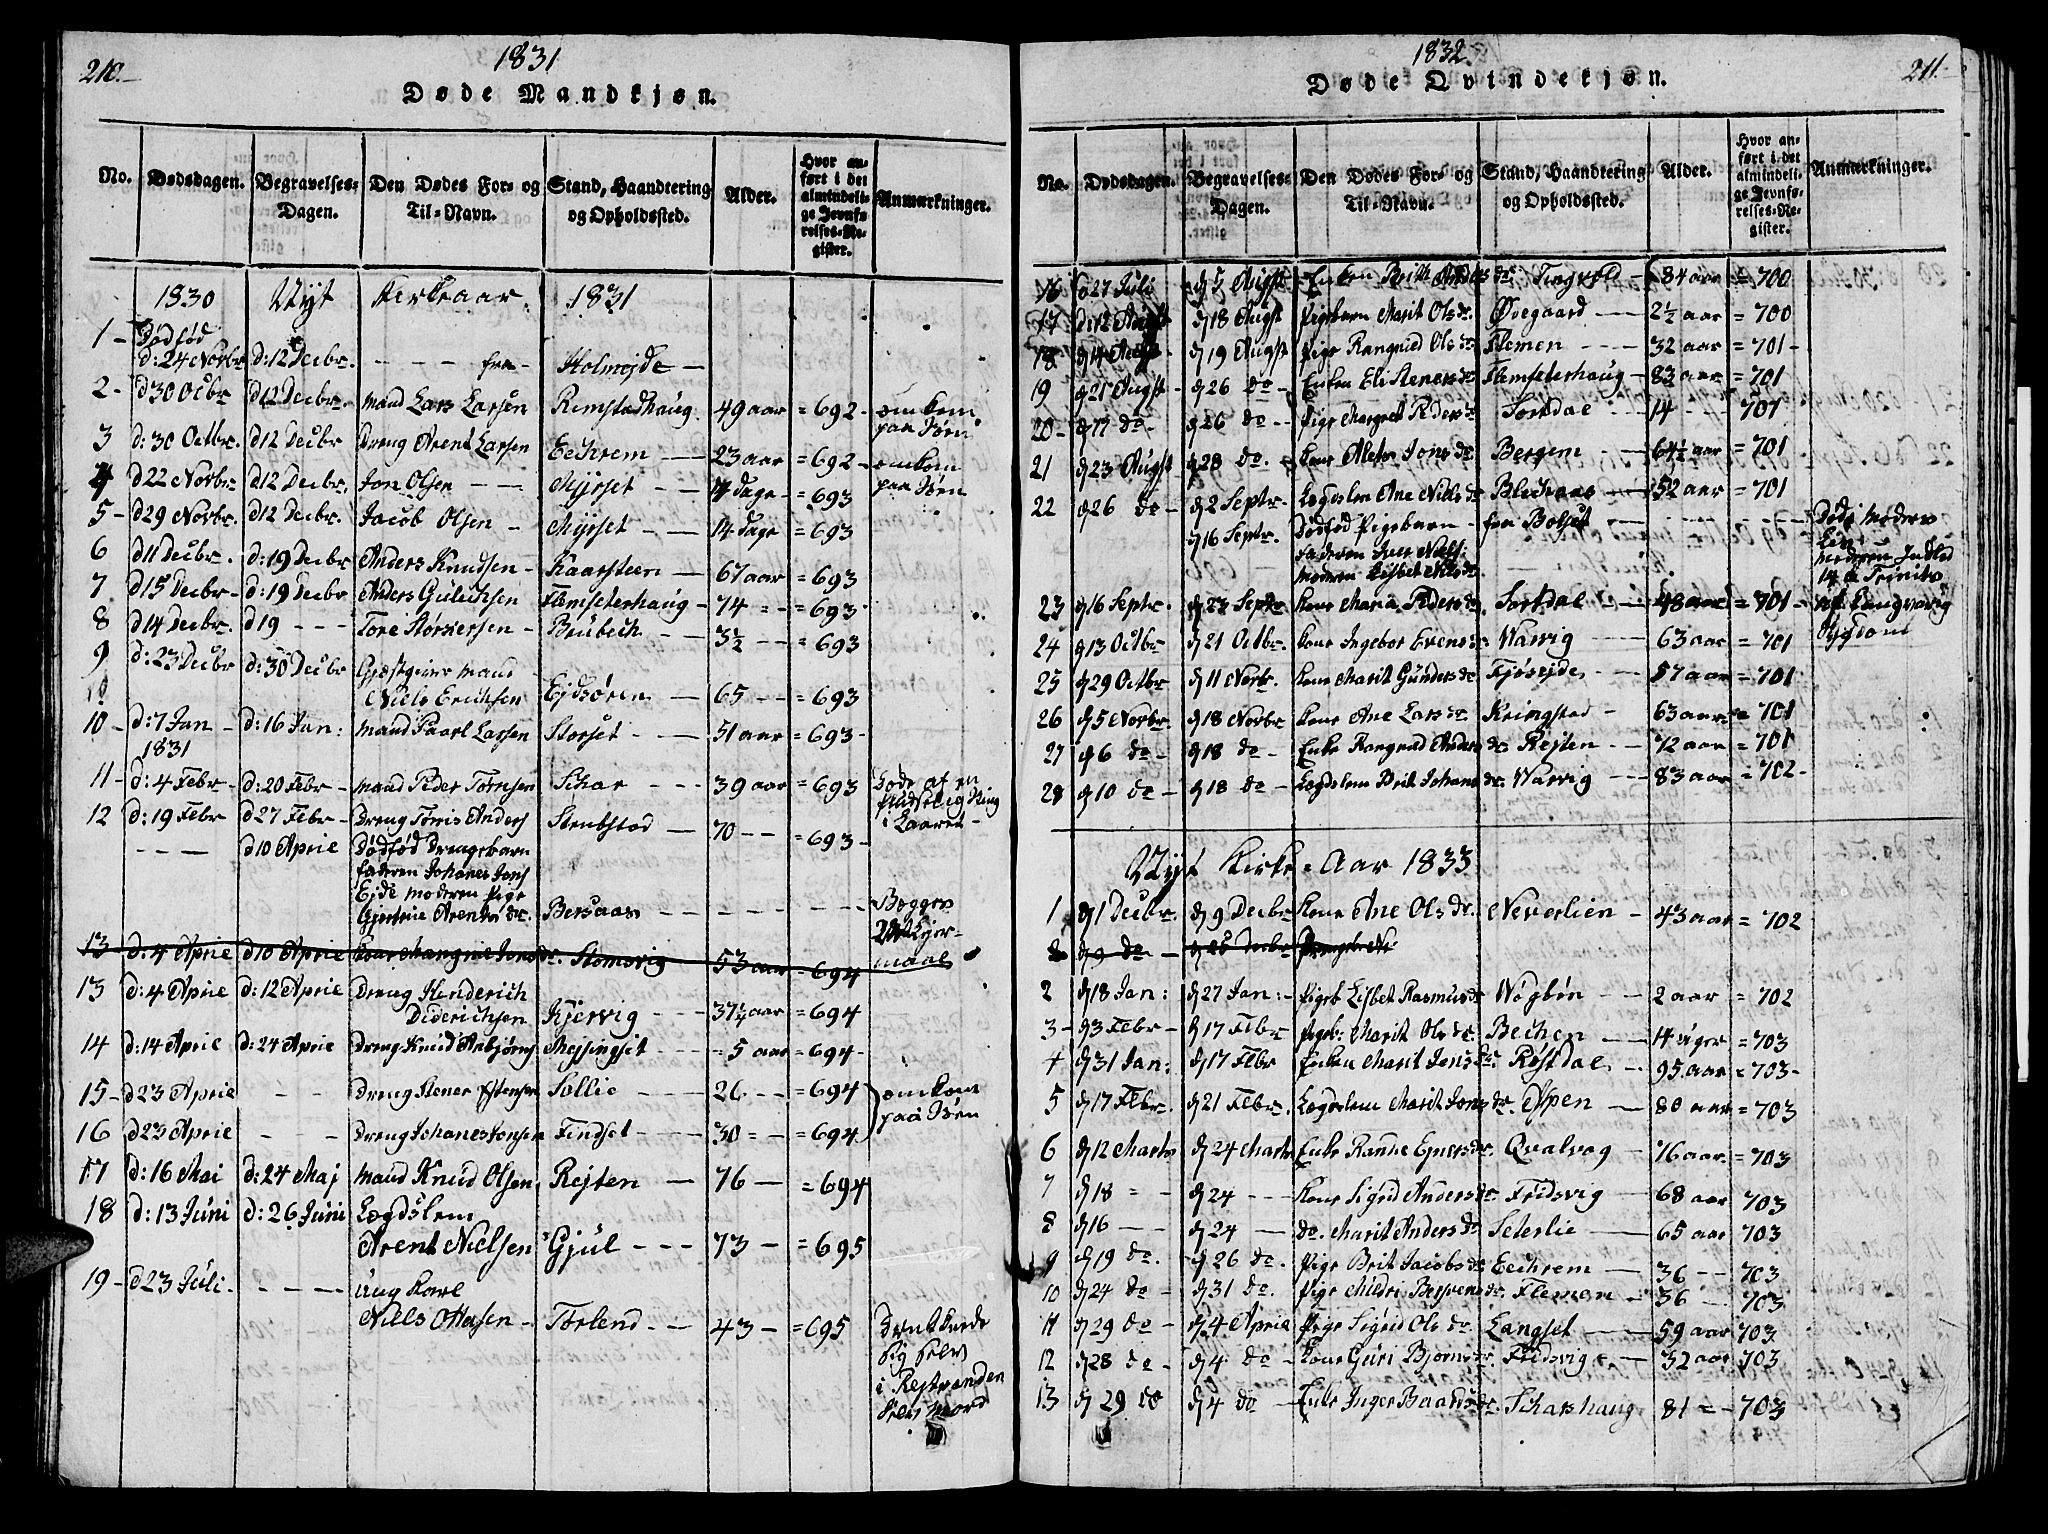 210.
1831
Døde Mandkjøn.
No. Dødsdagen. Begravelses-Dagen. Den Dødes For- og Til-Navn. Stand, Haandtering og Opholdssted. Alder. Hvor anført i det almindelige Jevnførelses-Register. Anmærkninger.
1830 Nyt Kirkeaar 1831
1 - Dødfød
d: 24 Novbr d: 12 Decbr. - - - fra - Holmejde -
2 - d 30 Octbr d 12 Decbr. mand Lars Larsen Remstadhaug 49 aar = 692 - omkom
3 d: 30 Octbr. d 12 Decbr Dreng Arent Larsen Eechrem - 23 aar = 692 - omkom
paa Søen
4 d 22 Novbr d 12 Decbr. Jon Olsen - - Myrset - - 14 dage - = 693 paa Søen
5 - d 29 Novbr. d 12 Decbr. Jacob Olsen - Myrset - - 14 dage = 693
6 d 11 Decbr. d: 19 Decbr Anders Knudsen - Kaarsteen - 67 aar = 693
7 d 15 Decbr - d: 19 Decbr Anders Gulichsen Flemseterhaug - 74 - - = 693
8 d 14 Decbr. d 19 - - - Tore Størsersen - Brubech - - 3½ - - = 693
9 d: 23 Decbr d: 30 Decbr Gjestgiver mand
Niels Erichsen Ejdsøren - 65 - - = 693
10 - d: 7 Jan - d: 16 Jan: mand Paarl Larsen Storset - - - 51 aar = 693 -
1831
11 - d: 4 Febr - d: 20 Febr - mand Peder Tørresen Schar - - - 39 aar = 693 Døde af en
12 d: 19 Febr d 27 Febr - Dreng Tøris Anders Stenbstad - 70 - - = 693 -
i Laaret -
- - - d 10 Aprie Dødfød Drengebarn
faderen Johanes Jons
Ejde moderen Pige
Gjertrue Arents dr. Bersaas - - - - - - - Begges
Lejer-
maal
13 d: 4 Aprie d 10 Aprie Jons dr. Stomsvig 53 aar = 694
13 d: 4 Aprie d: 12 Aprie Dreng Henderich
Diderichsen Kjervig - - - 37¼ aar = 694
14 d: 14 Aprie d: 24 Aprie Dreng Knud Asbjørns Mejsingset - - - - 5 aar = 694 -
15 - d 23 Aprie - - Dreng Stener Estensen Sollie - - 26 - - = 694 omkom
16 d 23 Aprie - - Dreng Johanes Jonsen Findset - - - 30 = - = 694 paa Søen
17 d: 16 Mai d: 24 Maj mand Knud Olsen Rejten - 76 - = 694
18 d: 13 Juni d: 26 Juni Legdslem
Arent Nielsen Gjul - - - 73 - = 695
19 - d 23 Juli - - - - Ung Karl
Niels Ottesen - Torlend - - 43 - = 695
sig selv
selv mord
1832
211.
Døde Qvindekjøn.
No. Dødsdagen. Begravelses-Dagen. Den Dødes For- og Til-Navn. Stand, Haandtering og Opholdssted. Alder. Hvor anført i det almindelige Jevnførelses-Register. Anmærkninger.
16 d 27 Juli d 5 Augst Enken Britt Anders dr. Tingvold - 84 aar = 700
17 d: 12 Augst d 18 Augst Pigebarn Marit Ols dr. Øvegaard - - 2½ aar = 700
18 d 14 Augst d 19 Augst Pige Rangnid Ols dr Flemen - - - 32 aar = 701 -
19 d 21 Augst - d 26 do - Enken Eli Steners dr Flemseterhaug - 83 aar = 701
20 - d 17 do - d 26 do - - Pige Margret Peders dr Sortdal - - 14 - - 701
21 d 23 Augst d 28 do. - Kone Jons dr. Bergem - - 64½ aar = 701
22 d 26 do - d 2 Septr - Legdslem Ane Niels dr Blechaas - 52 aar = 701
d 16 Septr. Dødfød Pigebarn - fra Bolset - - - - - Døde i moders
Liv
faderen Niels:
moderen Lisbet Niels dr.
14 a Trinit.
23 d 16 Septr. d 23 Septr Kone Maria Peders dr Sortdal - - 48 aar = 701 - af Langvarig
24 d 13 Octbr d 21 Octbr. Kone Ingebor Evens dr Warvig - - 63 aar = 701 Sygdom
25 d 29 Octbr d 11 Novbr. Kone Marit Gunders dr Fjøsejde - 57 aar = 701
26 d 5 Novbr. d 18 Novbr Kone Ane Lars dr Kringstad - 63 aar = 701
27 d 6 do - d 18 do - Enke Rangnid Anders dr Rejten - - 72 aar = 701
28 d 10 do - d 18 do - Legdslem Brit Johans dr. Warvig - - 83 aar = 702 -
Nyt Kirke - Aar 1833
1 d 1 Decbr. d 9 Decbr Kone Ane Ols dr. Neverlien - 43 aar = 702
2 d 9 do - d 26 Decbr
2 d 18 Jan: d 27 Jan: - Pigeb Lisbet Rasmus dr Wøgbøn - - 2 aar = 702
3 - d 3 Febr - d 17 Febr Pigeb: Marit Ols dr. Bechen - 14 uger = 703
4 d 31 Jan: d 17 Febr Enken Marit Jens dr. Røstdal - 95 aar = 703 -
5 d 17 Febr. d 21 Febr. Legdslem Marit Jons dr. Aspen - 80 aar = 703
6 d 12 Marts d 24 Marts Enke Ranne Ejners dr. Qvalvog - 76 aar = 703
7 d 18 - - d 24 - - - Kone Sigrid Anders dr. Fredsvig - 68 aar 703
8 d 16 - - d 24 - - do. Marit Anders dr Seterlie - 65 aar 703
9 d 19 do. - d 26 do. Pige Brit Jacobs dr Eechrem - - 36 - - 703
10 d 24 do - d 31 do. Pige Mildri Bersvens dr. Flemen - 36 - 703
11 d 29 do - d 4 Aprie Pige Sigrid Ols dr Langset - 59 aar 703
12 d 28 do - d 4 do - Kone Guri Bjorns dr. Fredsvig - - 32 aar 703
13 d 29 do d 4 do - Enke Inger Baards dr. Scharshaug 81 = - 703